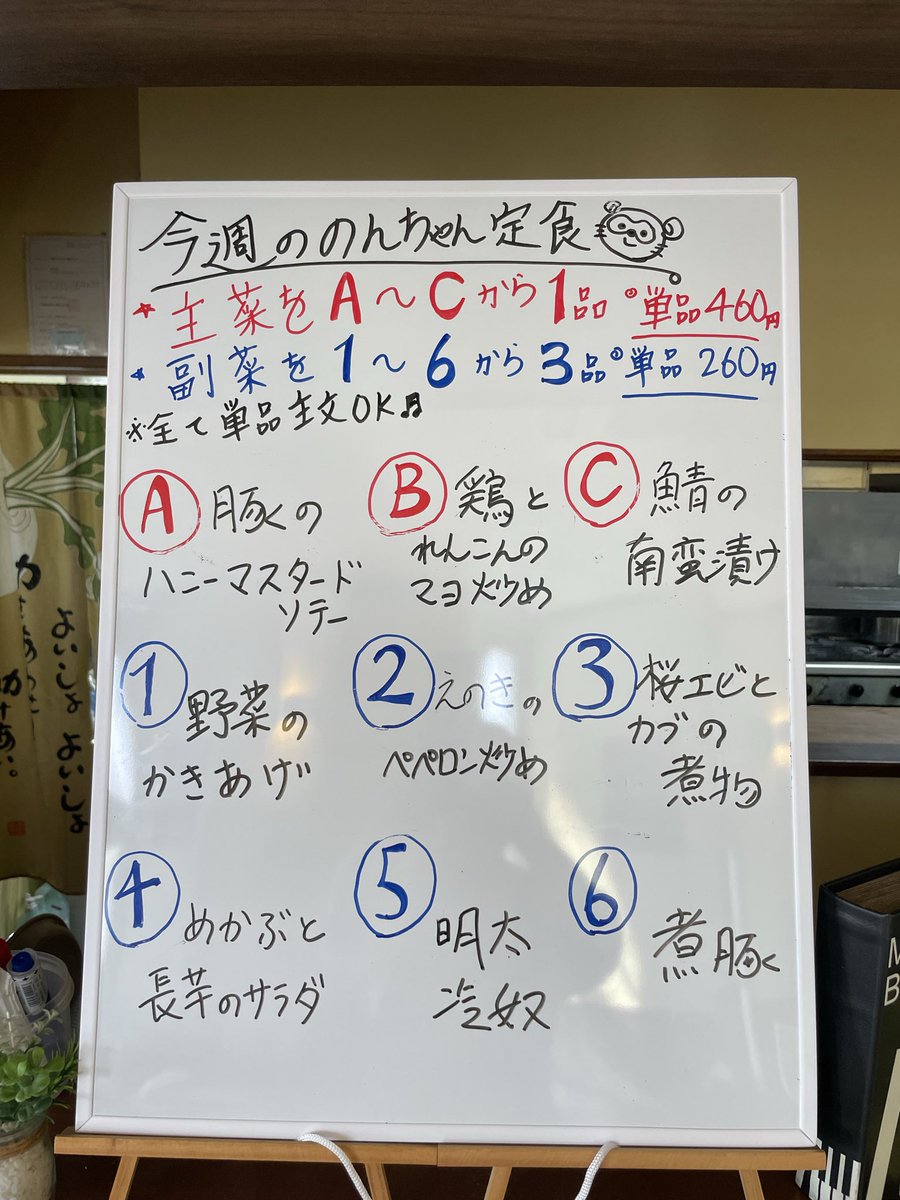 今週ののんちゃん定食
★主菜をA～Cから1品 単品460円
★副菜を1～6から3品 単品260円
※全て単品注文OK♬
Ⓐ豚の
ハニーマスタード
ソテー
Ⓑ鶏と
れんこんの
マヨ炒め
Ⓒ鯖の
南蛮漬け
①野菜の
かきあげ
②えのきの
ペペロン炒め
③桜エビと
カブの
煮物
④めかぶと
長芋のサラダ
⑤明太
冷奴
⑥煮豚
よいしょ よいしょ